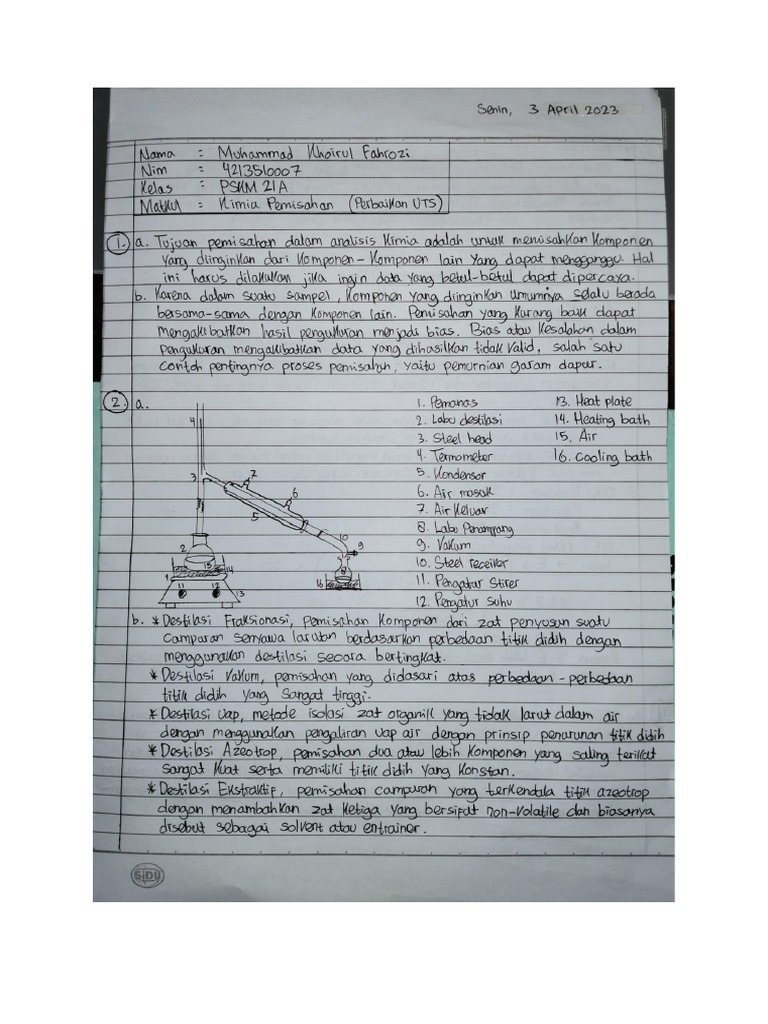 Senin, 3 April 2023
Nama : Muhammad Khoirul Fahrozi
Nim : 4213510007
Kelas : PSKM 21A
Matkul : Kimia Pemisahan (Perbaikan UTS)
1. a. Tujuan pemisahan dalam analisis kimia adalah untuk memisahkan komponen
yang diinginkan dari komponen-komponen lain yang dapat mengganggu. Hal
ini harus dilakukan jika ingin data yang betul-betul dapat dipercaya.
b. Karena dalam suatu sampel, komponen yang diinginkan umumnya selalu berada
bersama-sama dengan komponen lain. Pemisahan yang kurang baik dapat
mengakibatkan hasil pengukuran menjadi bias. Bias atau kesalahan dalam
pengukuran mengakibatkan data yang dihasilkan tidak valid, salah satu
contoh pentingnya proses pemisahan, yaitu pemurnian garam dapur.
2. a.
1. Pemanas
2. Labu destilasi
3. Steel head
4. Termometer
5. Kondensor
6. Air masuk
7. Air keluar
8. Labu Penampang
9. Vakum
10. Steel receiker
11. Pengatur Stirer
12. Pergatur suhu
13. Heat plate
14. Heating bath
15. Air
16. Cooling bath
4
3
7
6
5
10
9
8
2
15
14
1
11
12
13
16
b. * Destilasi Fraksionasi, pemisahan komponen dari zat penyusun suatu
campuran senyawa larutan berdasarkan perbedaan titik didih dengan
menggunakan destilasi secara bertingkat.
* Destilasi Vakum, pemisahan yang didasari atas perbedaan-perbedaan
titik didih yang sangat tinggi.
* Destilasi Uap, metode isolasi zat organik yang tidak larut dalam air
dengan menggunakan pengaliran uap air dengan prinsip penurunan titik didih
* Destilasi Azeotrop, pemisahan dua atau lebih komponen yang saling terikat
sangat kuat serta memiliki titik didih yang konstan.
* Destilasi Ekstraktif, pemisahan campuran yang terkendala titik azeotrop
dengan menambahkan zat ketiga yang bersifat non-volatile dan biasanya
disebut sebagai solvent atau entrainer.
SiDU